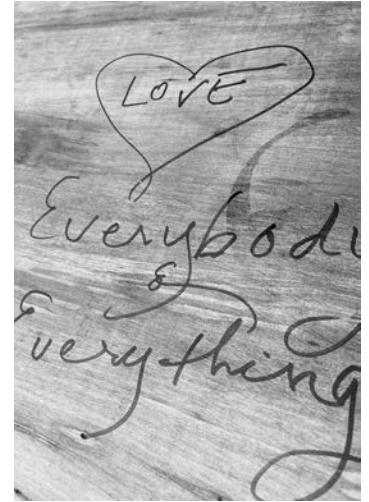 LOVE
Everybody
&
Everything